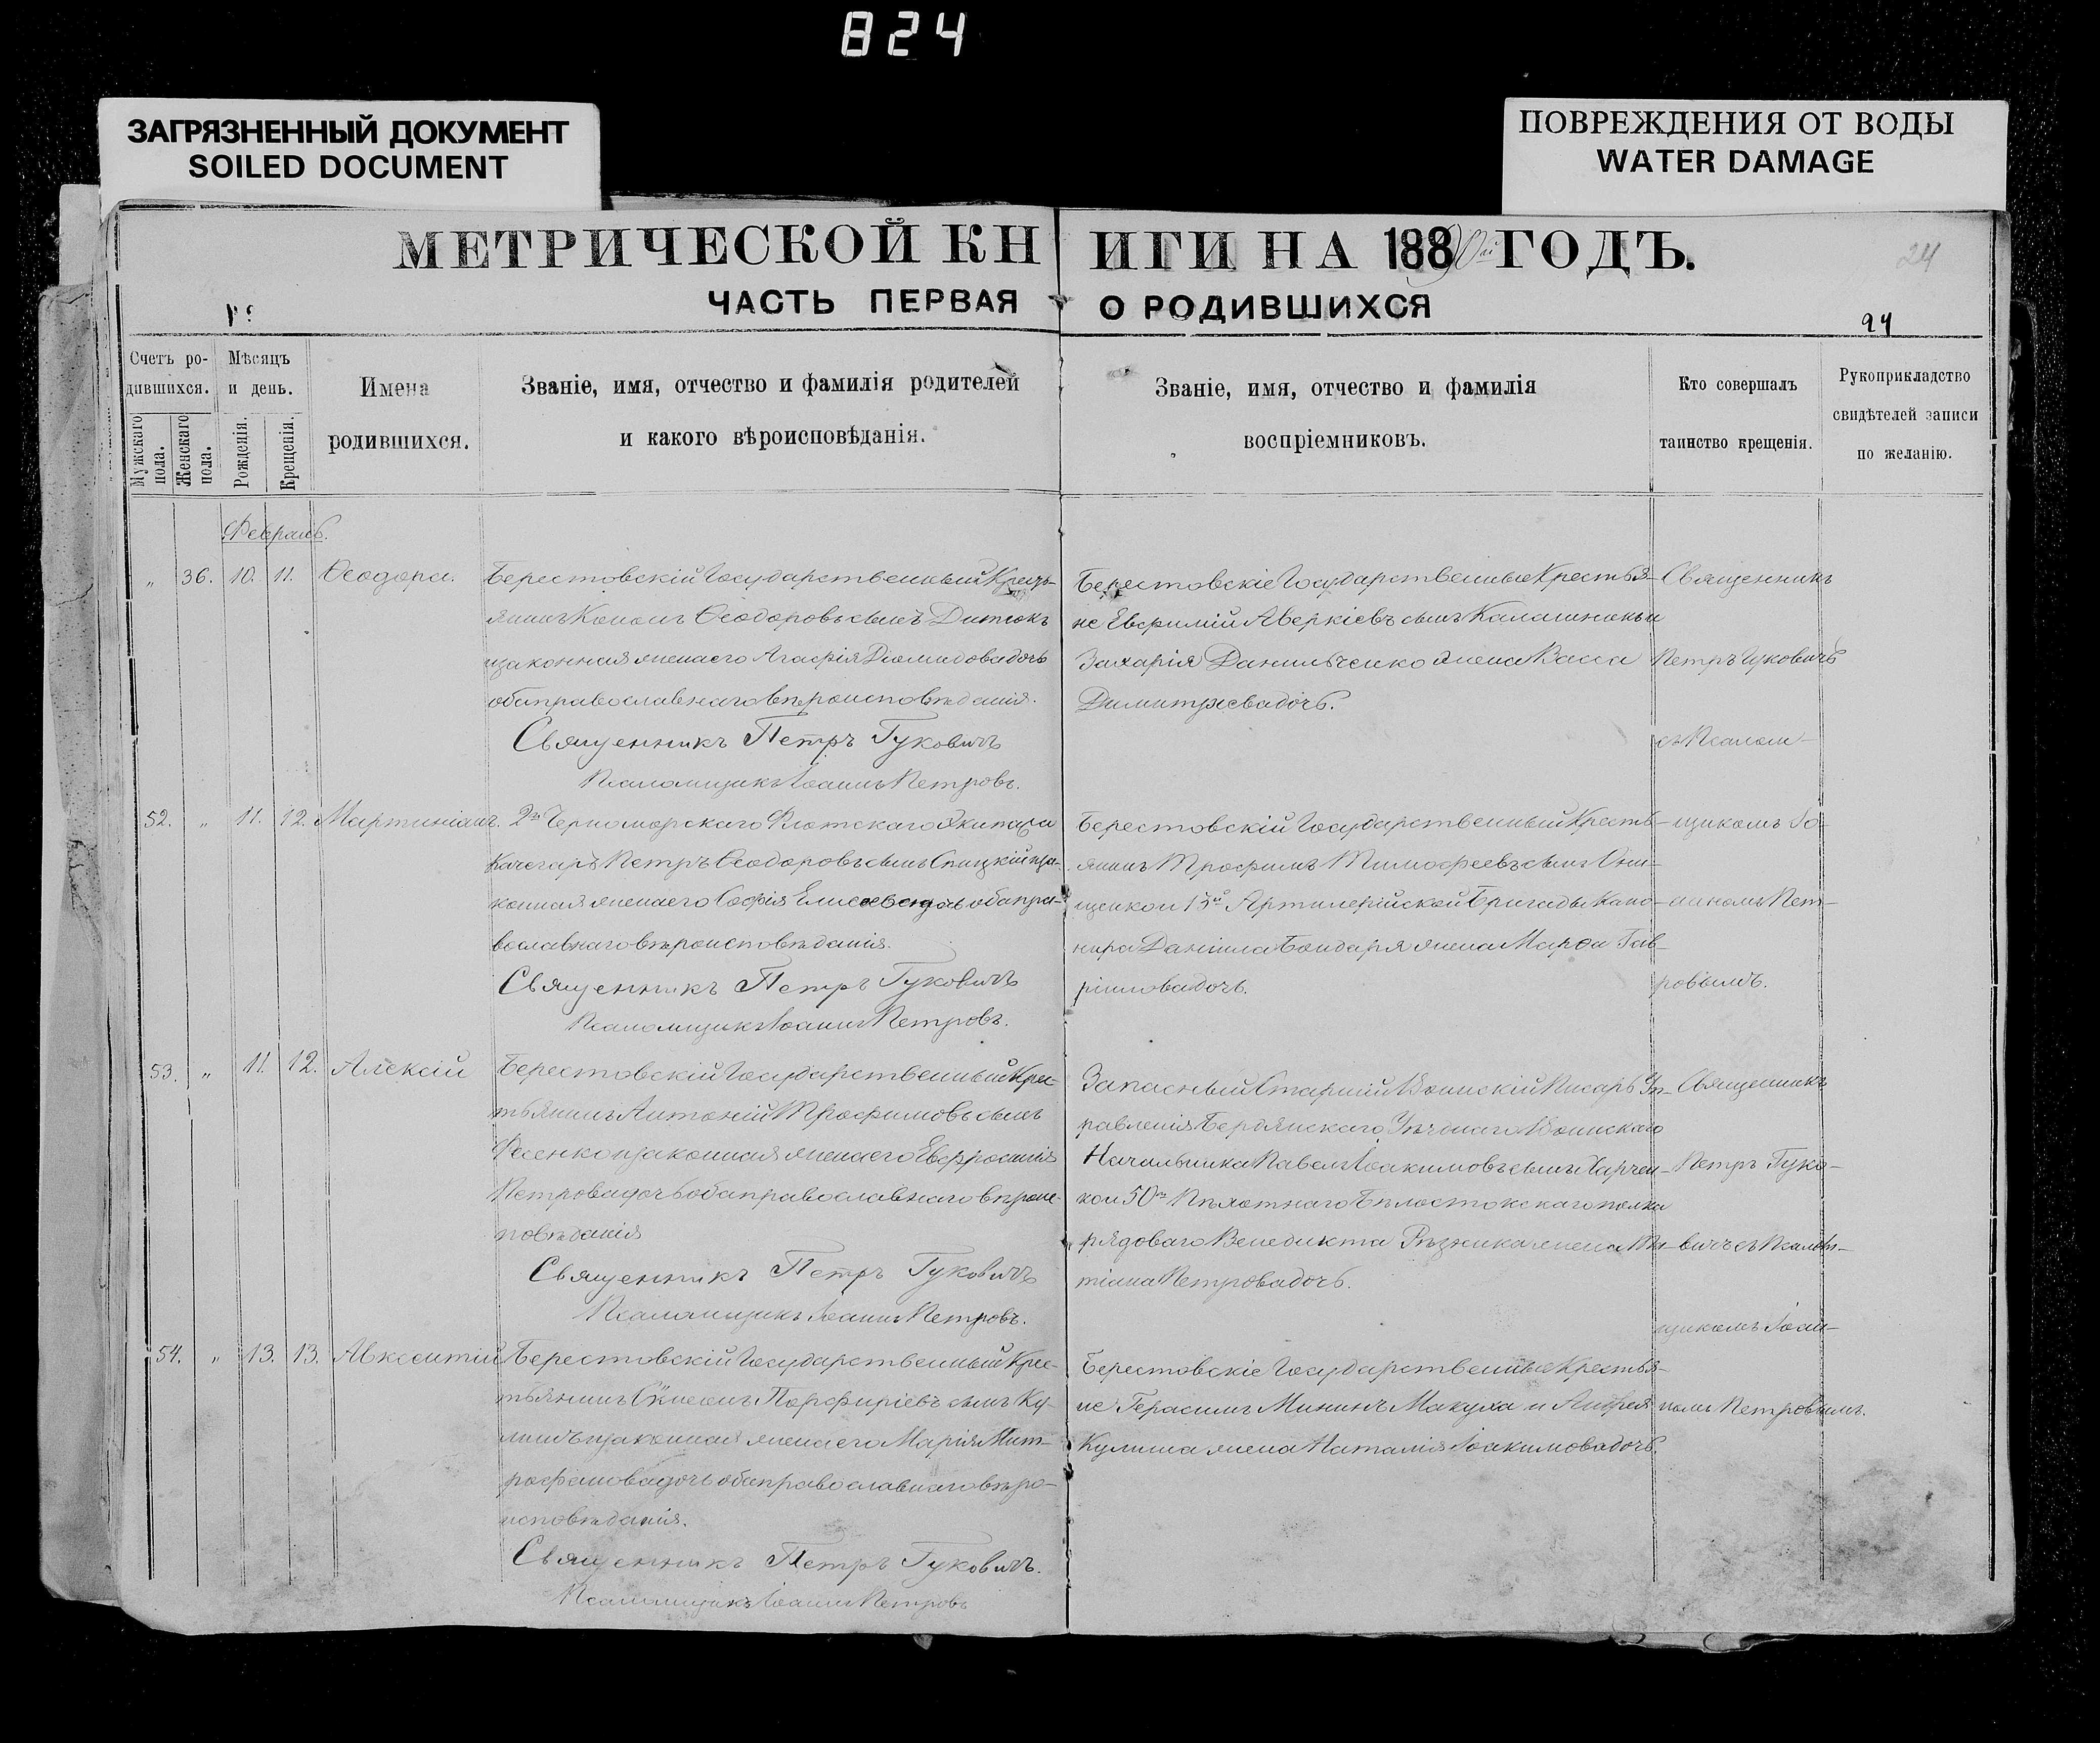 824
ЗАГРЯЗНЕННЫЙ ДОКУМЕНТ
SOILED DOCUMENT
ПОВРЕЖДЕНИЯ ОТ ВОДЫ
WATER DAMAGE
МЕТРИЧЕСКОЙ КН
ИГИ НА 1880й ГОДЪ.
24
ЧАСТЬ ПЕРВАЯ
О РОДИВШИХСЯ
24
Счетъ ро-
дившихся.
Мужскаго пола.
Женскаго пола.
Мѣсяцъ
и день.
Рожденія.
Крещенія.
Имена
родившихся.
Званіе, имя, отчество и фамилія родителей
и какого вѣроисповѣданія.
Званіе, имя, отчество и фамилія
воспріемниковъ.
Кто совершалъ
таинство крещенія.
Рукоприкладство
свидѣтелей записи
по желанію.
Февраль.
" 36. 10. 11. Ѳеодора.
Берестовскій Государственный Кресть-
янинъ Кононъ Ѳеодоровъ сынъ Дитюкъ
и законная жена его Агафія Діомидова дочь
оба православнаго вѣроисповѣданія.
Священникъ Петръ Гуковичъ
Псаломщикъ Іоаннъ Петровъ.
Берестовскіе Государственные Крестья-
не Евфимій Аверкіевъ сынъ Калашникъ и
Захарія Данильченко жена Васса
Димитріева дочь.
52. " 11. 12. Мартиніанъ.
2го Черноморскаго Флотскаго Экипажа
Качегаръ Петръ Ѳеодоровъ сынъ Спицкій и за-
конная жена его Софія Елисеева дочь оба пра-
вославнаго вѣроисповѣданія.
Священникъ Петръ Гуковичъ
Псаломщикъ Іоаннъ Петровъ.
Берестовскій Государственный Кресть-
янинъ Трофимъ Тимофеевъ сынъ Они-
щенко и 13й Артилерійской Бригады Кано-
нира Даніила Бондаря жена Марѳа Гав-
ріилова дочь.
Священникъ
Петръ Гуковичъ
съ Псалом-
щикомъ Іо-
анномъ Пет-
ровымъ.
53. " 11. 12. Алексій
Берестовскій Государственный Крес-
тьянинъ Антоній Трофимовъ сынъ
Фесенко и законная жена его Евфросинія
Петрова дочь оба православнаго вѣроис-
повѣданія
Священникъ Петръ Гуковичъ
Псаломщикъ Іоаннъ Петровъ.
Запасный Старшій Воинскій Писарь Уп-
равленія Бердянскаго Уѣзднаго Воинскаго
Начальника Павелъ Іоакимовъ сынъ Харчен-
ко и 50го Пѣхотнаго Бѣлостокскаго полка
рядоваго Венедикта Рѣзника жена
тіана Петрова дочь.
54. " 13. 13. Авксентій
Берестовскій Государственный Крес-
тьянинъ Симеонъ Порфиріевъ сынъ Ку-
лишъ и законная жена его Марія Мит-
рофанова дочь оба православнаго вѣро-
исповѣданія.
Священникъ Петръ Гуковичъ.
Псаломщикъ Іоаннъ Петровъ
Берестовскіе Государственные Крестья-
не Герасимъ Мининъ Макуха и Андрея
Кулиша жена Наталія Іоакимова дочь.
Священникъ
Петръ Гуко-
вичъ съ Псалом-
щикомъ Іоан-
номъ Петровымъ.